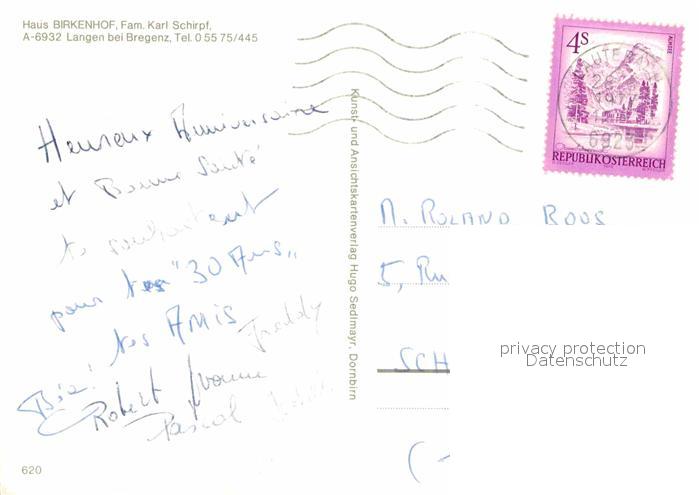 Haus BIRKENHOF, Fam. Karl Schirpf,
A-6932 Langen bei Bregenz, Tel. 0 55 75/445
Heureux Anniversaire
et Bonne Santé
te souhaitent
pour tes "30 Ans"
tes AMIS
Freddy
Biz!
Robert Yvonne
Pascal
620
Kunst- und Ansichtskartenverlag Hugo Sedlmayr, Dornbirn
4S
ALMSEE
6923
REPUBLIK ÖSTERREICH
M. ROLAND ROOS
5, Ru
SCH
privacy protection
Datenschutz